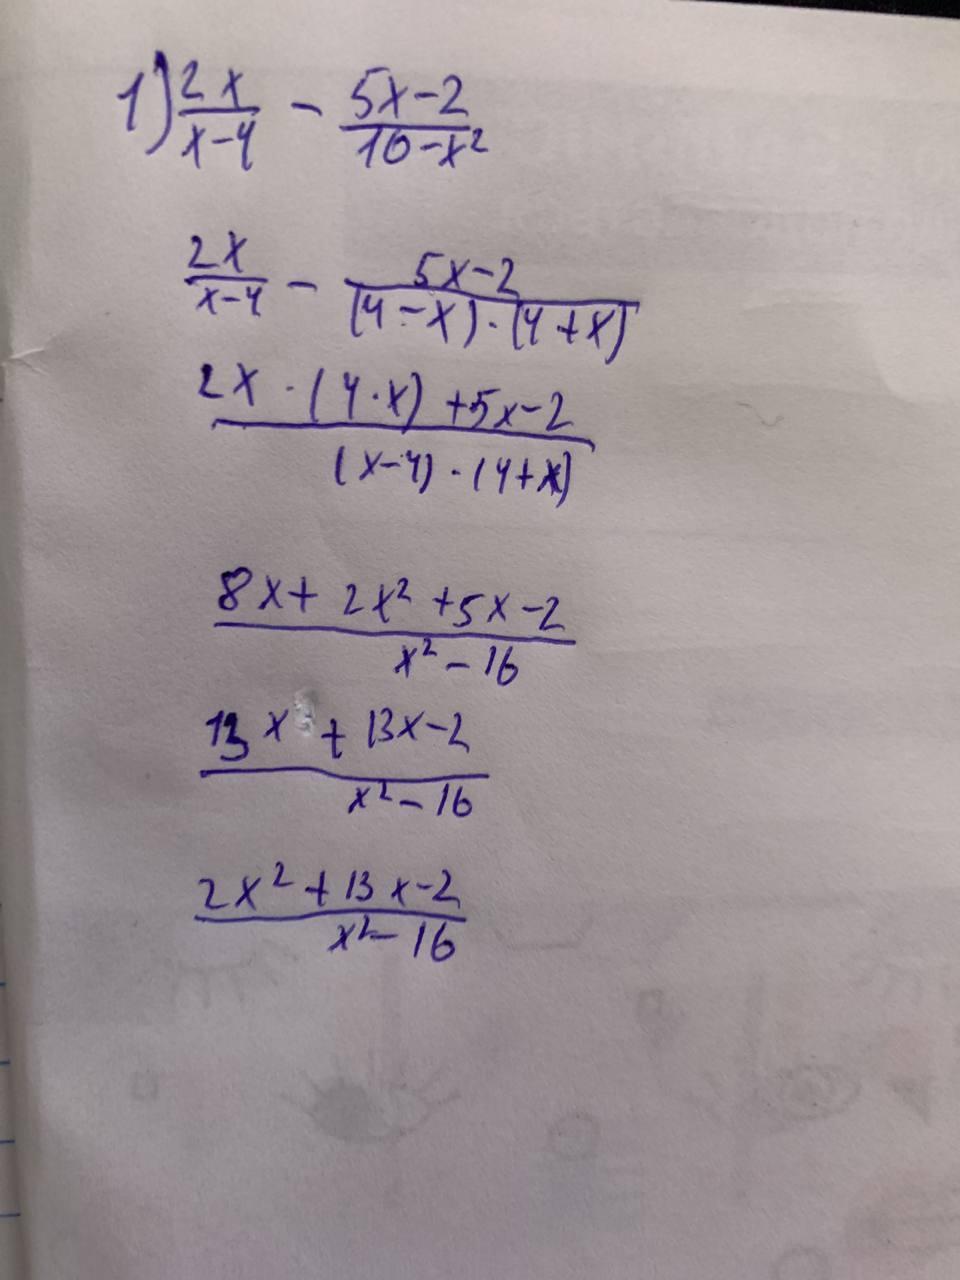 1) 2x/(x-4) - (5x-2)/(10-x²)
2x/(x-4) - (5x-2)/((4-x)·(4+x))
(2x·(4·x)+5x-2)/((x-4)·(4+x))
(8x+2x²+5x-2)/(x²-16)
(13x + 13x-2)/(x²-16)
(2x²+13x-2)/(x²-16)